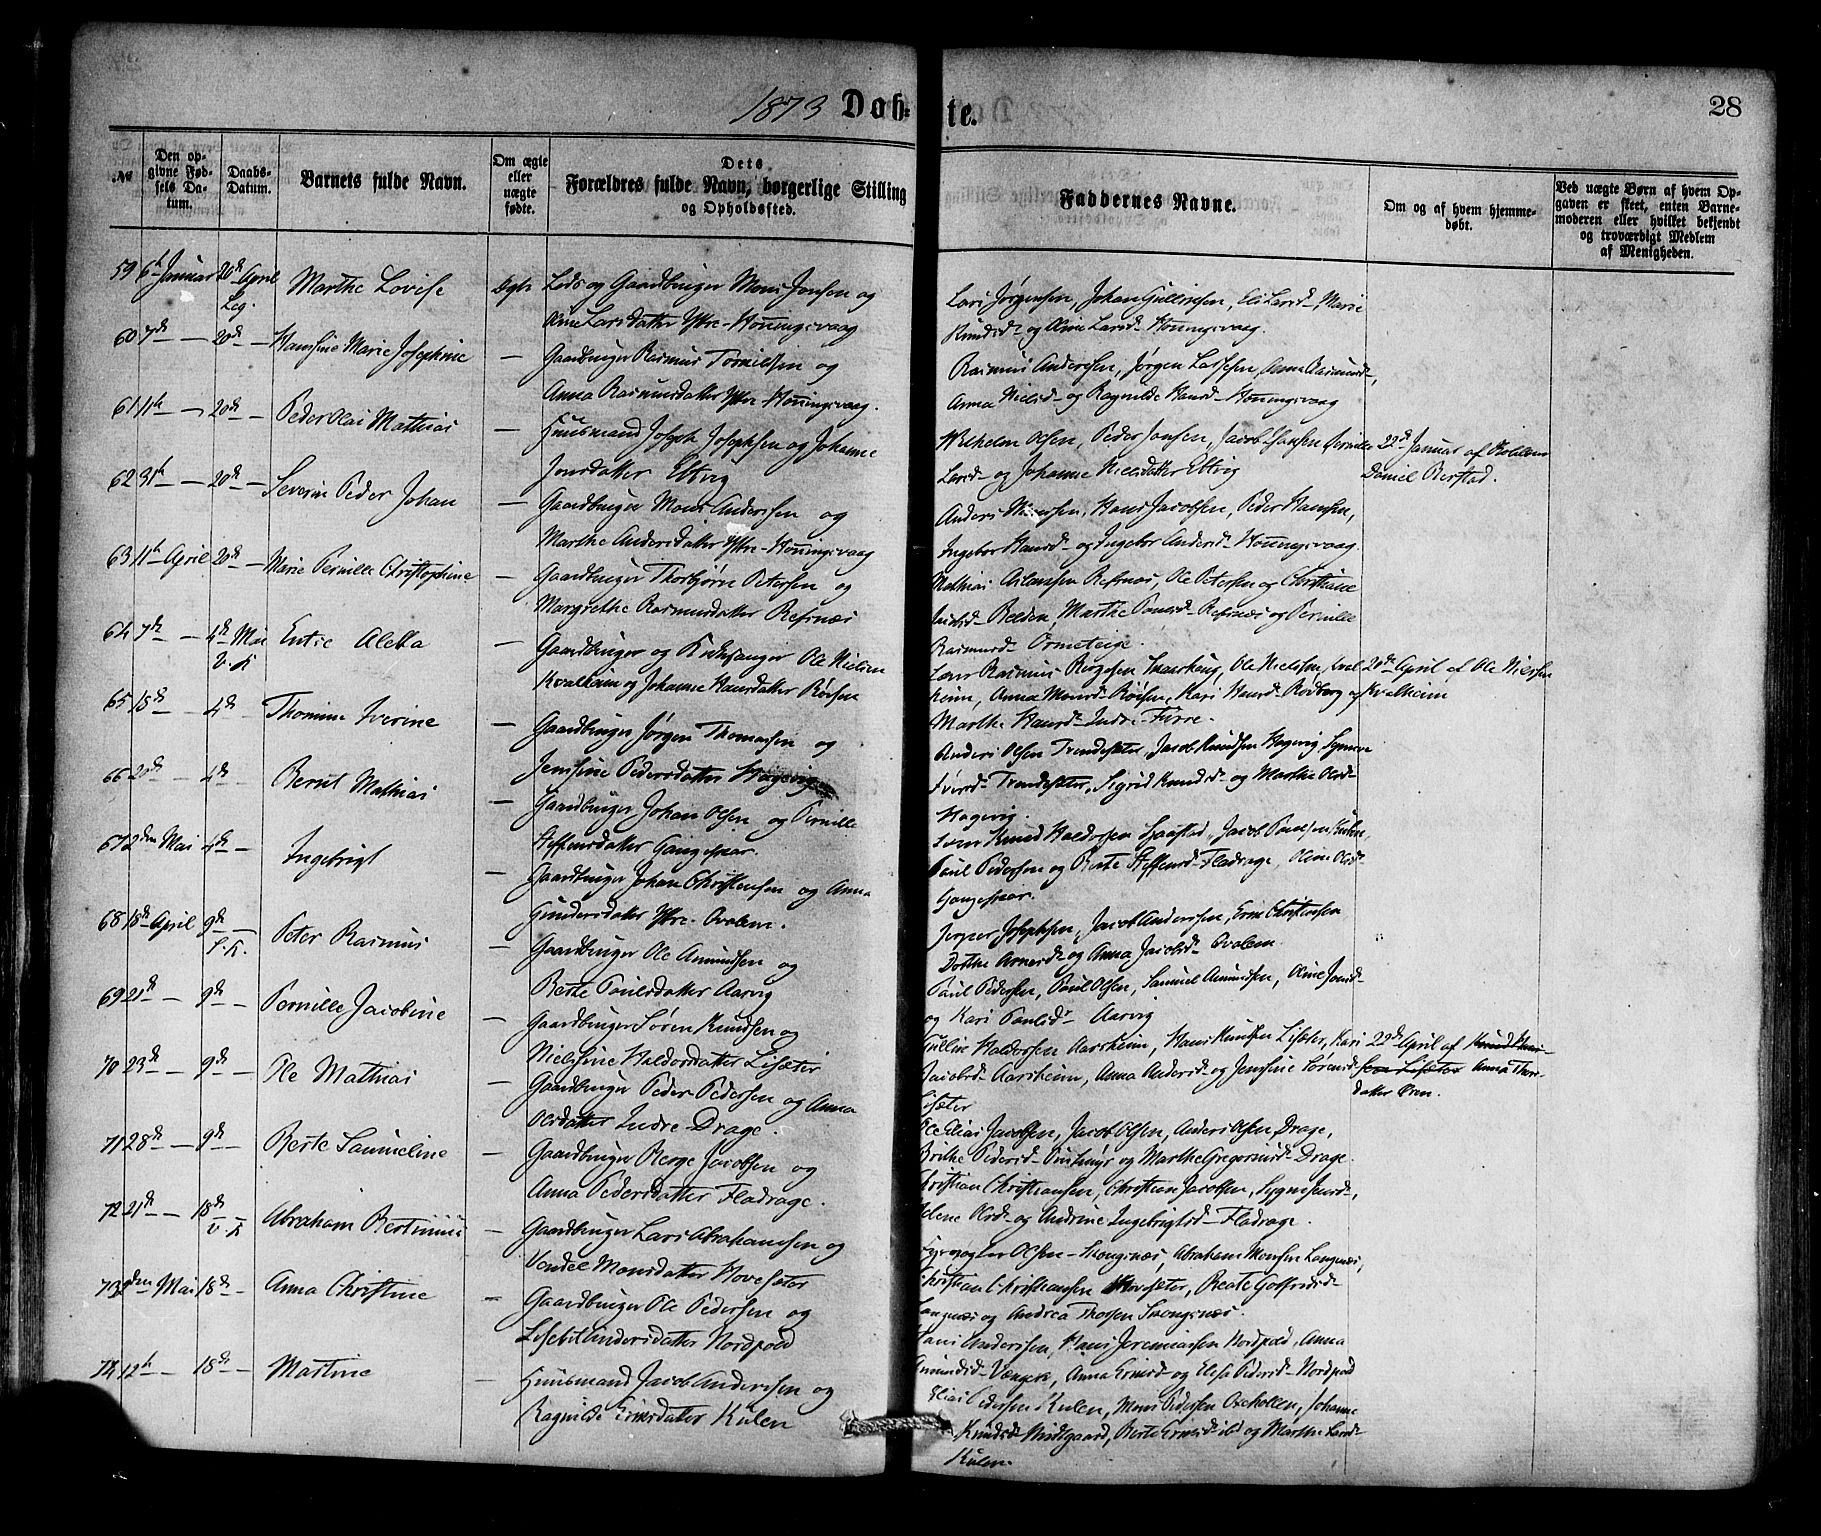 1873 Døb-te. 28
№
Den opgivne Fødsels Datum.
Daabs-Datum.
Barnets fulde Navn.
Om ægte eller uægte fødte.
Dets Forældres fulde Navn, borgerlige Stilling og Opholdssted.
Faddernes Navne.
Om og af hvem hjemmedøbt.
Ved uægte Børn af hvem Opgaven er skeet, enten Barnemoderen eller hvilket bekjendt og troværdigt Medlem af Menigheden.
59 6te Januar 20de April Marthe Lovise Gaardbruger Mons Jonsen og
Leg. Oline Larsdatter Ytre-Honningsvaag
Lars Jørgensen, Johan Gullissen, Eli Larsd- Marie
Knudsd- og Oline Larsd- Honningsvaag.
60 7de — 20de — Hansine Marie Josephine — Gaardbruger Rasmus Tornildsen og
Anna Rasmusdatter Ytre-Honningsvaag.
Rasmus Andersen, Jørgen Larssen, Anne Rasmusd-,
Anna Nielsd- og Ragnilde Hansd- Honningsvaag
61 11te — 20de — Peder Olai Mathias — Huusmand Joseph Josephsen og Johanne
Jonsdatter Ettvig
Wilhelm Olsen, Peder Jonsen, Jacob Hansen, Pernille
Larsd- og Johanne Nielsdatter Ettvig
22de Januar af
Daniel Berstad.
62 31te — 20de — Severin Peder Johan — Gaardbruger Mons Andersen og
Marthe Andersdatter Ytre-Honningsvaag
Anders Monssen, Hans Jacobsen, Peder Hansen,
Ingebor Hansd- og Ingebor Andersd- Honningsvaag.
63 11te April 20de — Marie Pernille Christophine — Gaardbruger Thorbjørn Petersen og
Margrethe Rasmusdatter Refsnæs
Mathias Aslaksen Refsnæs, Ole Petersen og Christiane
Marthe Refsnæs og Pernille
Rasmusd- Ormeteige.
64 7de — 4de Mai Entse Aletta — Gaardbruger og Kirkesanger Ole Nielsen
V. K. Kvalheim og Johanne Hansdatter Røisen
Rasmus Børgesen Ole Nielsen, Kval-
heim, Anna Monsd- Røisen, Kari Hansd- Rødberg og
Marthe Hansd- Indre-Furre.
20de April af Ole Nielsen
Kvalheim
65 18de — 4de Thomine Iverine — Gaardbruger Jørgen Thomassen og
Jensine Pedersdatter Hagevig
Anders Olsen Trendesæter, Jacob Knudsen Hagevig, Synneve
Iversd- Trendesæter, Sigrid Knudsd- og Marthe Olsd-
Hagevig.
66 20de — 4de Bernt Mathias — Gaardbruger Johan Olsen og Pernille
Steffensdatter Gangespar.
Knud Haldorsen Jacob Paulsen
Paul Pedersen og Berte Steffensd- Fladrage, Oline Olsd-
Gangespar.
67 2den Mai 4de — Ingebrigt — Gaardbruger Johan Christensen og Anna
Gundersdatter Ytre-Ovalem.
Jesper Josephsen, Jacob Andersen, Erik Christensen
Dorthe Arnesd- og Anna Jacobsd- Ovalem
68 18de April 9de — Peter Rasmus — Gaardbruger Ole Amundsen og
S. K. Berte Paulsdatter Aarvig
Paul Pedersen, Paul Olsen, Samuel Amundsen, Oline Jonsd-
og Kari Paulsd- Aarvig
69 21de — 9de — Pernille Jacobine — Gaardbruger Søren Knudsen og
Nielsine Haldorsdatter Lisæter
Gullik Haldorsen Aarsheim, Hans Knudsen Lisæter, Kari
Jacobsd- Aarsheim, Anna Andersd- og Jensine Sørensd-
Lisæter
29de April af Knud Han-
sen Lisæter Anna Thor-
datter Øren.
70 23de — 9de — Ole Mathias — Gaardbruger Peder Pedersen og Anna
Olsdatter Indre-Drage.
Ole Elias Jacobsen, Jacob Olsen, Anders Olsen Drage,
Brithe Pedersd- og Marthe Gregoriusd- Drage.
71 28de — 9de — Berte Samueline — Gaardbruger Børge Jacobsen og
Anna Pedersdatter Fladrage.
Christian Christiansen, Christian Jacobsen, Sygne Jensd-,
Helene Olsd- og Andrine Ingebrigtsd- Fladrage.
72 21de — 18de — Abraham Bertinius — Gaardbruger Lars Abrahamsen og
V. K. Vendel Monsdatter Hovesæter
Olsen Skongsnæs, Abraham Monsen Langenæs,
Christian Christiansen Hovesæter, Beate Gotfridsd-
Langenæs og Andrea Thorsen Skongsnæs.
73 9den Mai 18de — Anna Christine — Gaardbruger Ole Pedersen og
Lisebet Andersdatter Nordpoll
Hans Andersen, Hans Jeremiassen Nordpoll, Anna
Amundsd- Vængen, Anna Ermesd- og Elisa Pedersd- Nordpoll
74 12te — 18de — Martine — Huusmand Jacob Andersen og
Ragnilde Ermsdatter Kulen
Elias Pedersen Kulen, Mons Pedersen Oxehollen, Johanne
Knudsd- Midtgaard, Berte Ermsd- ibd og Marthe Larsd-
Kulen.